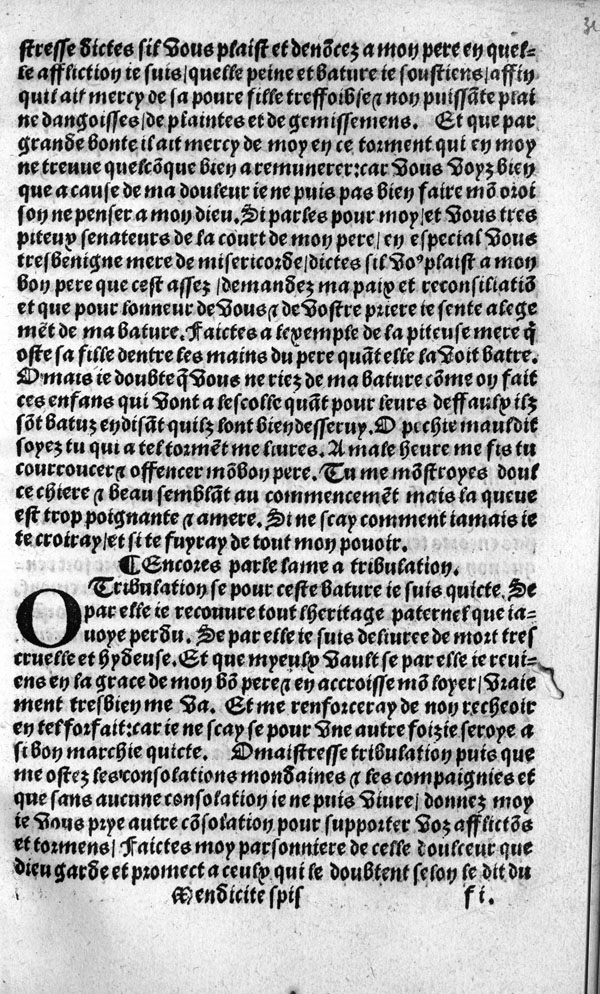 31
stresse dictes sil vous plaist et denõcez a mon pere en quel-
le affliction ie suis/quelle peine et bature ie soustiens/affin
quil ait mercy de sa poure fille treffoible ⁊ non puissãte plai
ne dangoisses/de plaintes et de gemissemens. Et que par
grande bonte il ait mercy de moy en ce torment qui en moy
ne treuue quelcõque bien a remunerer:car vous voyz bien
que a cause de ma douleur ie ne puis pas bien faire mõ oroi
son ne penser a mon dieu. Si parles pour moy/et vous tres
piteux senateurs de la court de mon pere/ en especial vous
tresbenigne mere de misericorde/dictes sil voꝰ plaist a mon
bon pere que cest assez/demandez ma paix et reconsiliatiõ
et que pour lonneur de vous ⁊ de vostre priere ie sente alege
mẽt de ma bature. Faictes a lexemple de la piteuse mere q̃
oste sa fille dentre les mains du pere quãt elle la voit batre.
O mais ie doubte q̃ vous ne riez de ma bature cõme on fait
ces enfans qui vont a lescolle quãt pour leurs deffaulx ilz
sõt batuz en disãt quilz lont bien desseruy. O pechie mauldit
soyez tu qui a tel tormẽt me liures. A male heure me fis tu
courroucer ⁊ offencer mõ bon pere. Tu me mõstroyes doul
ce chiere ⁊ beau semblãt au commencemẽt mais la queue
est trop poignante ⁊ amere. Si ne scay comment iamais ie
te croiray/et si te fuyray de tout mon pouoir.
¶Encores parle lame a tribulation.
O Tribulation se pour ceste bature ie suis quicte. Se
par elle ie recouure tout lheritage paternel que ia-
uoye perdu. Se par elle ie suis deliuree de mort tres
cruelle et hydeuse. Et que myeulx vault se par elle ie reui-
ens en la grace de mon bõ pere ⁊ en accroisse mõ loyer/vraie
ment tresbien me va. Et me renforceray de non recheoir
en tel forfait:car ie ne scay se pour vne autre foiz ie seroye a
si bon marchie quicte. O maistresse tribulation puis que
me ostez les consolations mondaines ⁊ les compaignies et
que sans aucune consolation ie ne puis viure/ donnez moy
ie vous prye autre cõsolation pour supporter voz afflictõs
et tormens/ Faictes moy parsonniere de celle doulceur que
dieu garde et promect a ceulx qui le doubtent selon le dit du
Mendicite spis f i.